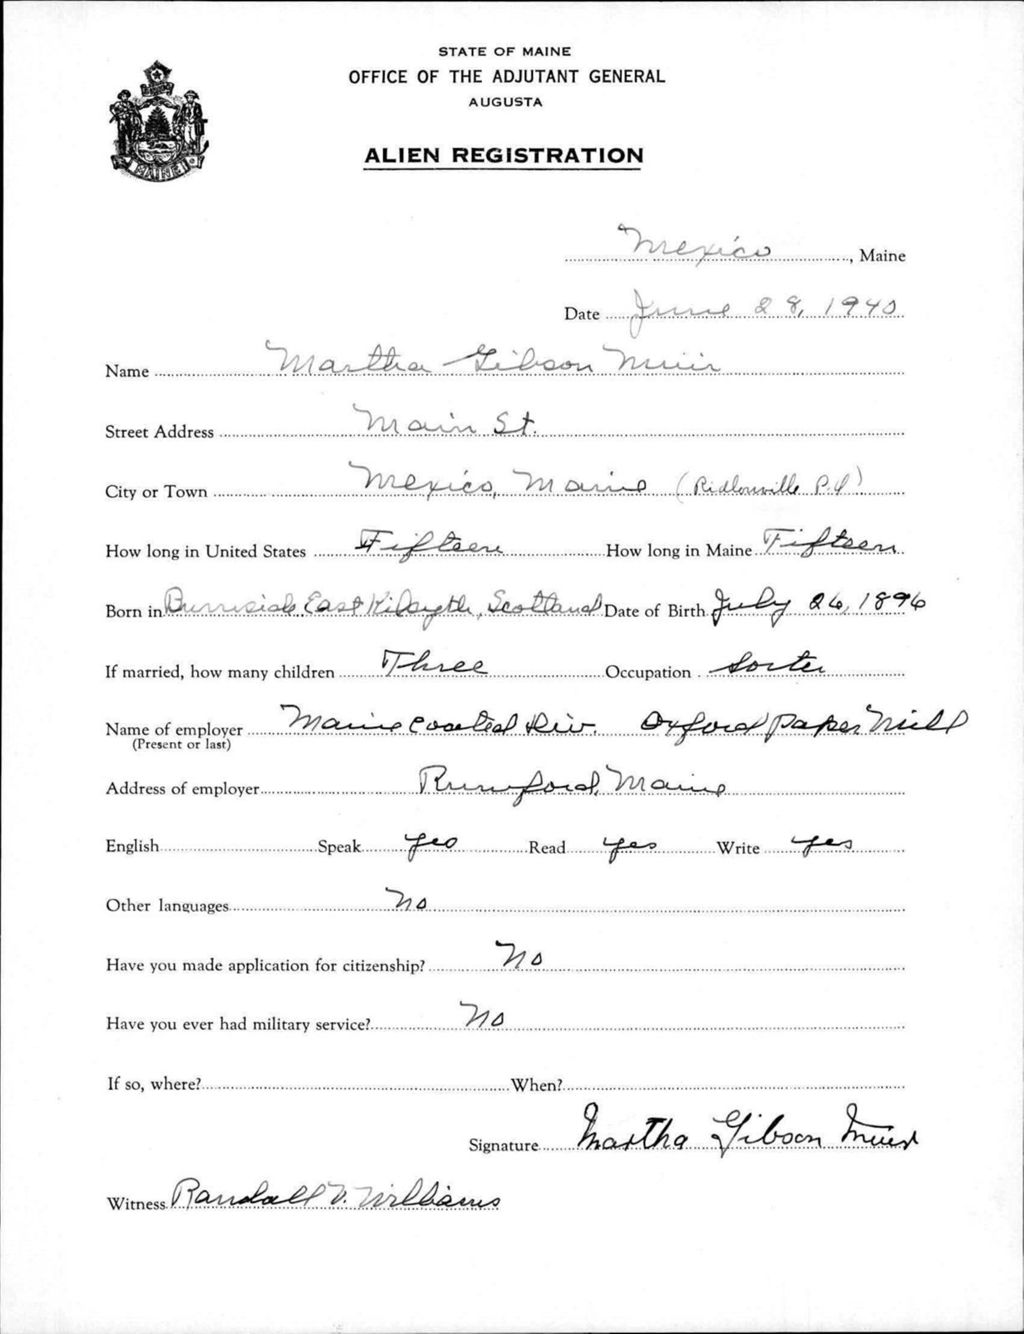 STATE OF MAINE
OFFICE OF THE ADJUTANT GENERAL
AUGUSTA
ALIEN REGISTRATION
MAINE
Mexico, Maine
Date June 28, 1940
Name Martha Gibson Muir
Street Address Main St.
City or Town Mexico, Maine (Ridlonville P.O)
How long in United States Fifteen How long in Maine Fifteen
Born in Burnside East Kilsyth, Scotland Date of Birth July 26, 1896
If married, how many children Three Occupation Sorter
Name of employer Maine Coated Div. Oxford Paper Mill
(Present or last)
Address of employer Rumford, Maine
English Speak yes Read yes Write yes
Other languages No
Have you made application for citizenship? No
Have you ever had military service? No
If so, where? When?
Signature Martha Gibson Muir
Witness Randall V. Williams